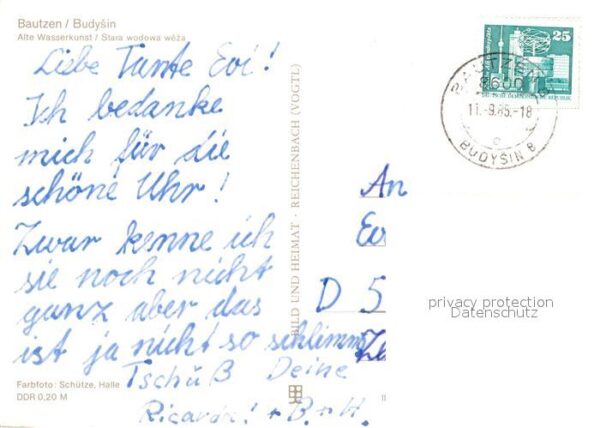 Bautzen / Budyšin
Alte Wasserkunst / Stara wodowa wěža
Liebe Tante Evi!
Ich bedanke
mich für die
schöne Uhr!
Zwar kenne ich
sie noch nicht
ganz aber das
ist ja nicht so schlimm
Tschüß Deine
Ricarda! + B + H.
Farbfoto: Schütze, Halle
DDR 0,20 M
BILD UND HEIMAT · REICHENBACH (VOGTL)
25
BAUTZEN
8600
11.-9.85.-18
c
BUDYŠIN 8
An
D 5
privacy protection
Datenschutz